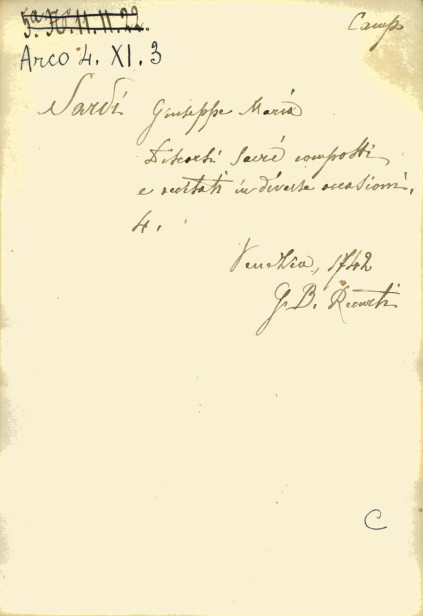 5ª. H. 11. 11. 22.
Camp
Arco 4. XI. 3
Sardi Giuseppe Maria
Discorsi Sacri composti
e recitati in diverse occasioni.
4.
Venezia, 1742
G. B. Recurti
C